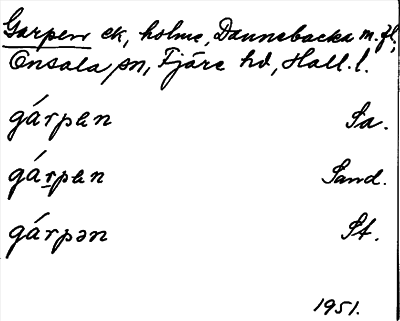 Garpen ek, holme, Dannebacka m.fl,
Onsala sn, Fjäre hd, Hall. l.
gárpen Sa.
gárpen Sand.
gárpən St.
1951.